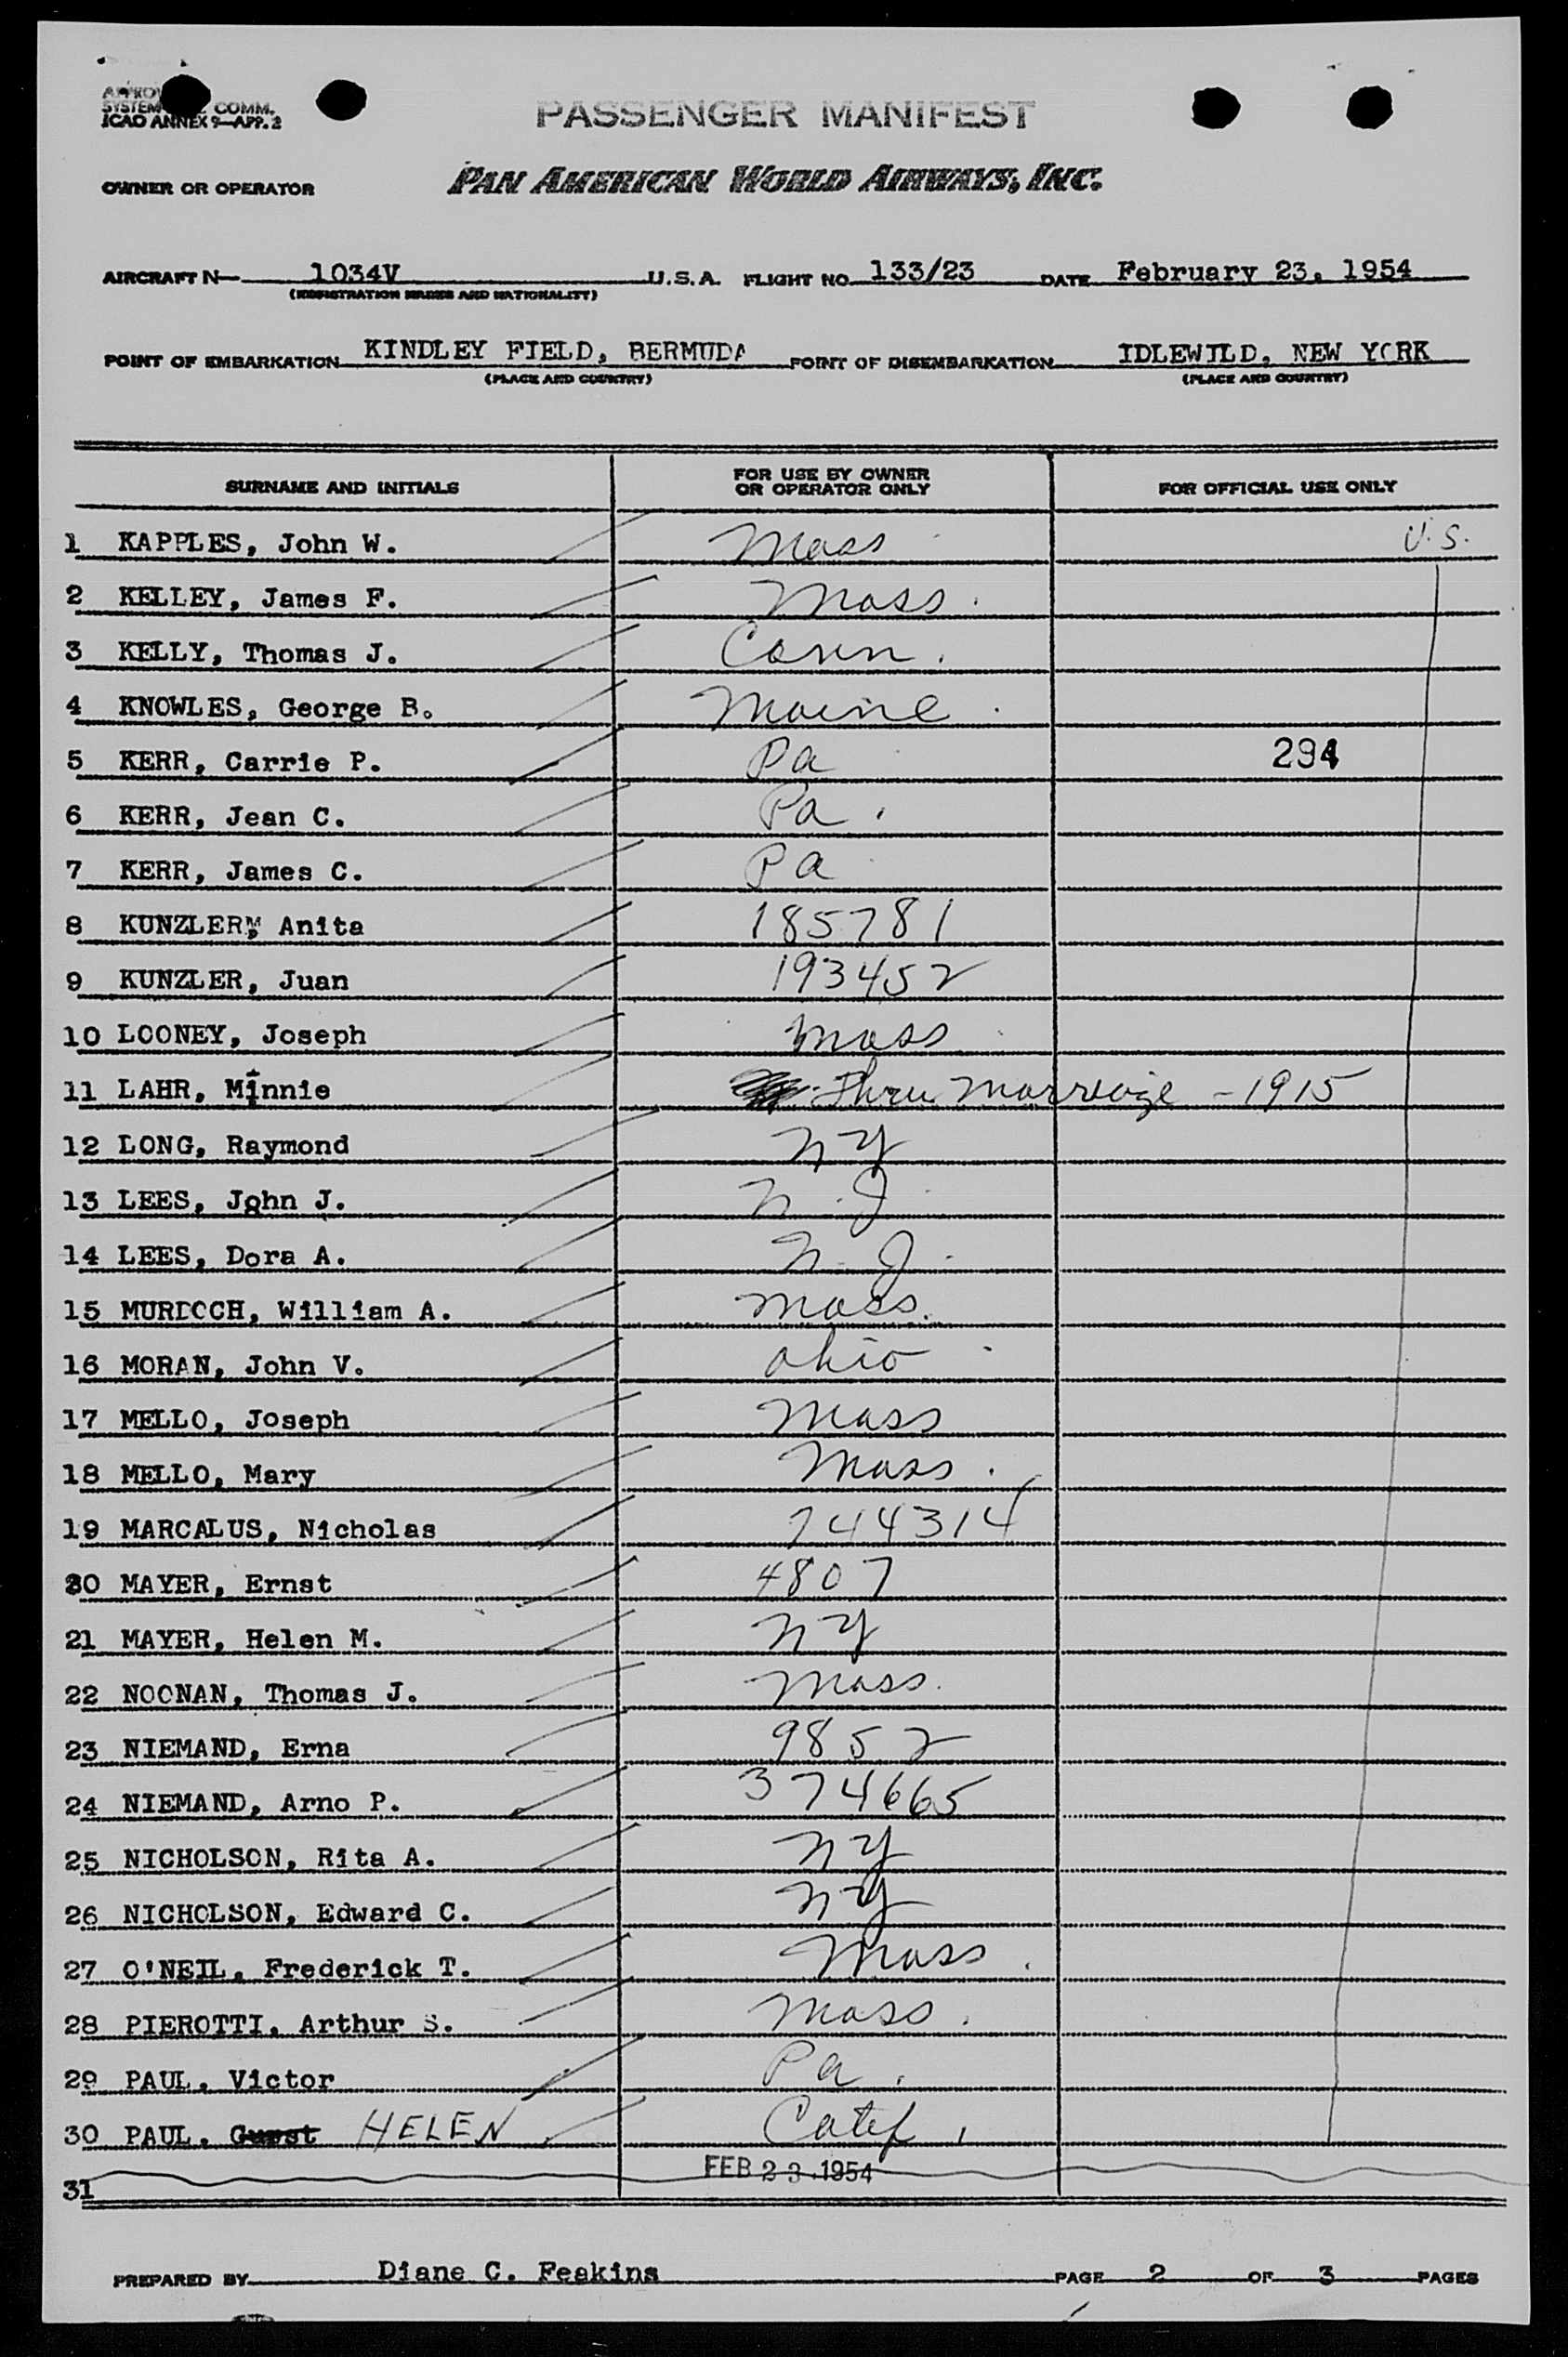 APPRO
SYSTEM COMM.
ICAO ANNEX 9—APP. 2
PASSENGER MANIFEST
OWNER OR OPERATOR PAN AMERICAN WORLD AIRWAYS, INC.
AIRCRAFT N— 1034V U.S.A. FLIGHT NO. 133/23 DATE February 23, 1954
(REGISTRATION MARKS AND NATIONALITY)
POINT OF EMBARKATION KINDLEY FIELD, BERMUDA POINT OF DISEMBARKATION IDLEWILD, NEW YORK
(PLACE AND COUNTRY) (PLACE AND COUNTRY)
SURNAME AND INITIALS FOR USE BY OWNER OR OPERATOR ONLY FOR OFFICIAL USE ONLY
1 KAPPLES, John W. Mass U.S.
2 KELLEY, James F. Mass.
3 KELLY, Thomas J. Conn.
4 KNOWLES, George B. Maine
5 KERR, Carrie P. Pa 294
6 KERR, Jean C. Pa.
7 KERR, James C. Pa
8 KUNZLER, Anita 185781
9 KUNZLER, Juan 193452
10 LOONEY, Joseph Mass
11 LAHR, Minnie Thru Marriage - 1915
12 LONG, Raymond NY
13 LEES, John J. N.J.
14 LEES, Dora A. N.J.
15 MURDOCH, William A. Mass.
16 MORAN, John V. Ohio
17 MELLO, Joseph Mass
18 MELLO, Mary Mass.
19 MARCALUS, Nicholas 744314
20 MAYER, Ernst 4807
21 MAYER, Helen M. NY
22 NOONAN, Thomas J. Mass.
23 NIEMAND, Erna 9852
24 NIEMAND, Arno P. 374665
25 NICHOLSON, Rita A. NY
26 NICHOLSON, Edward C. NY
27 O'NEIL, Frederick T. Mass.
28 PIEROTTI, Arthur S. Mass.
29 PAUL, Victor Pa.
30 PAUL, Guest HELEN Calif.
31 FEB 23 1954
PREPARED BY Diane C. Feakins PAGE 2 OF 3 PAGES